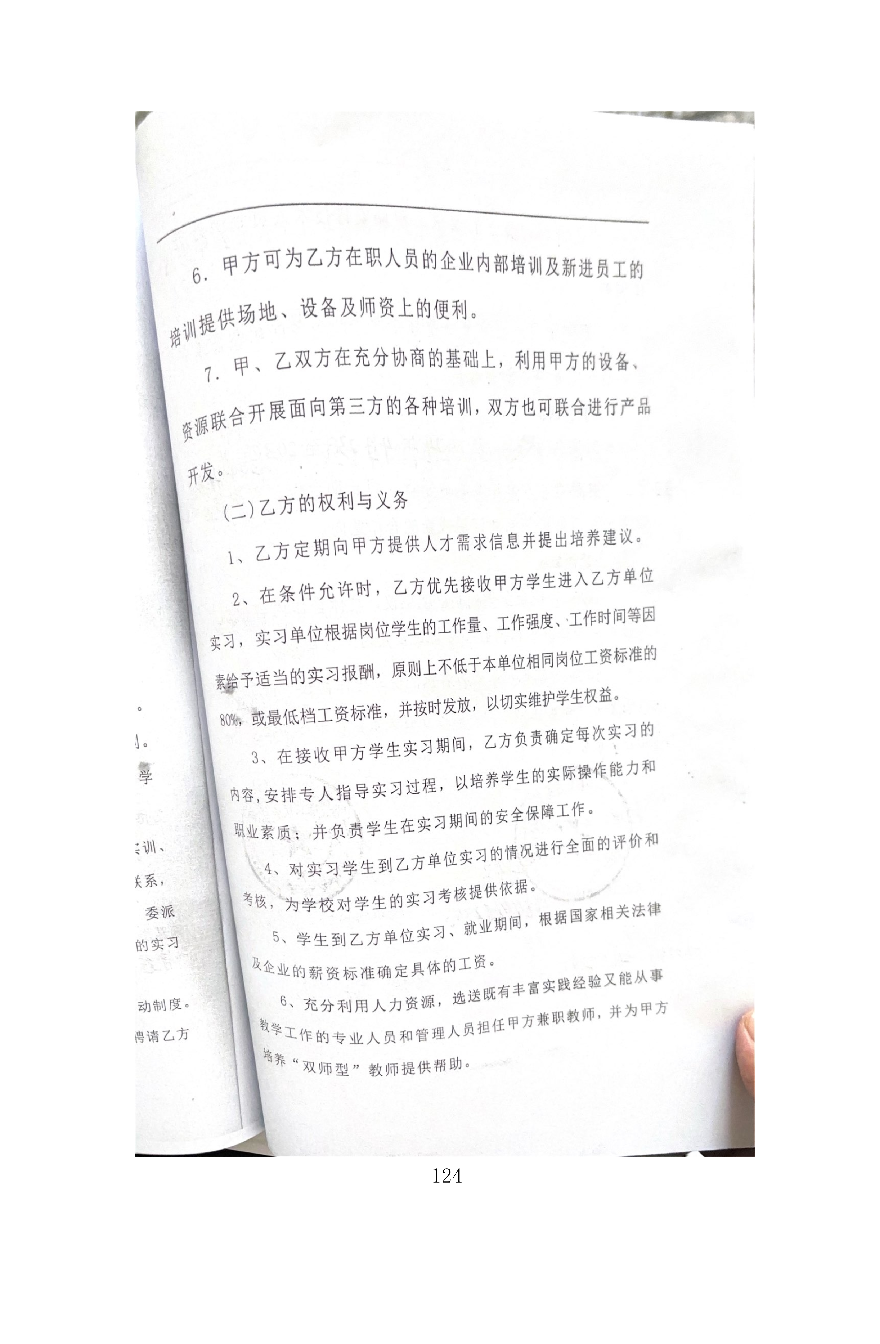 6. 甲方可为乙方在职人员的企业内部培训及新进员工的
培训提供场地、设备及师资上的便利。
7. 甲、乙双方在充分协商的基础上，利用甲方的设备、
资源联合开展面向第三方的各种培训，双方也可联合进行产品
开发。
(二)乙方的权利与义务
1、乙方定期向甲方提供人才需求信息并提出培养建议。
2、在条件允许时，乙方优先接收甲方学生进入乙方单位
实习，实习单位根据岗位学生的工作量、工作强度、工作时间等因
素给予适当的实习报酬，原则上不低于本单位相同岗位工资标准的
80%，或最低档工资标准，并按时发放，以切实维护学生权益。
3、在接收甲方学生实习期间，乙方负责确定每次实习的
内容,安排专人指导实习过程，以培养学生的实际操作能力和
职业素质；并负责学生在实习期间的安全保障工作。
4、对实习学生到乙方单位实习的情况进行全面的评价和
考核，为学校对学生的实习考核提供依据。
5、学生到乙方单位实习、就业期间，根据国家相关法律
及企业的薪资标准确定具体的工资。
6、充分利用人力资源，选送既有丰富实践经验又能从事
教学工作的专业人员和管理人员担任甲方兼职教师，并为甲方
培养“双师型”教师提供帮助。
。
学
训、
系，
委派
的实习
动制度。
聘请乙方
124